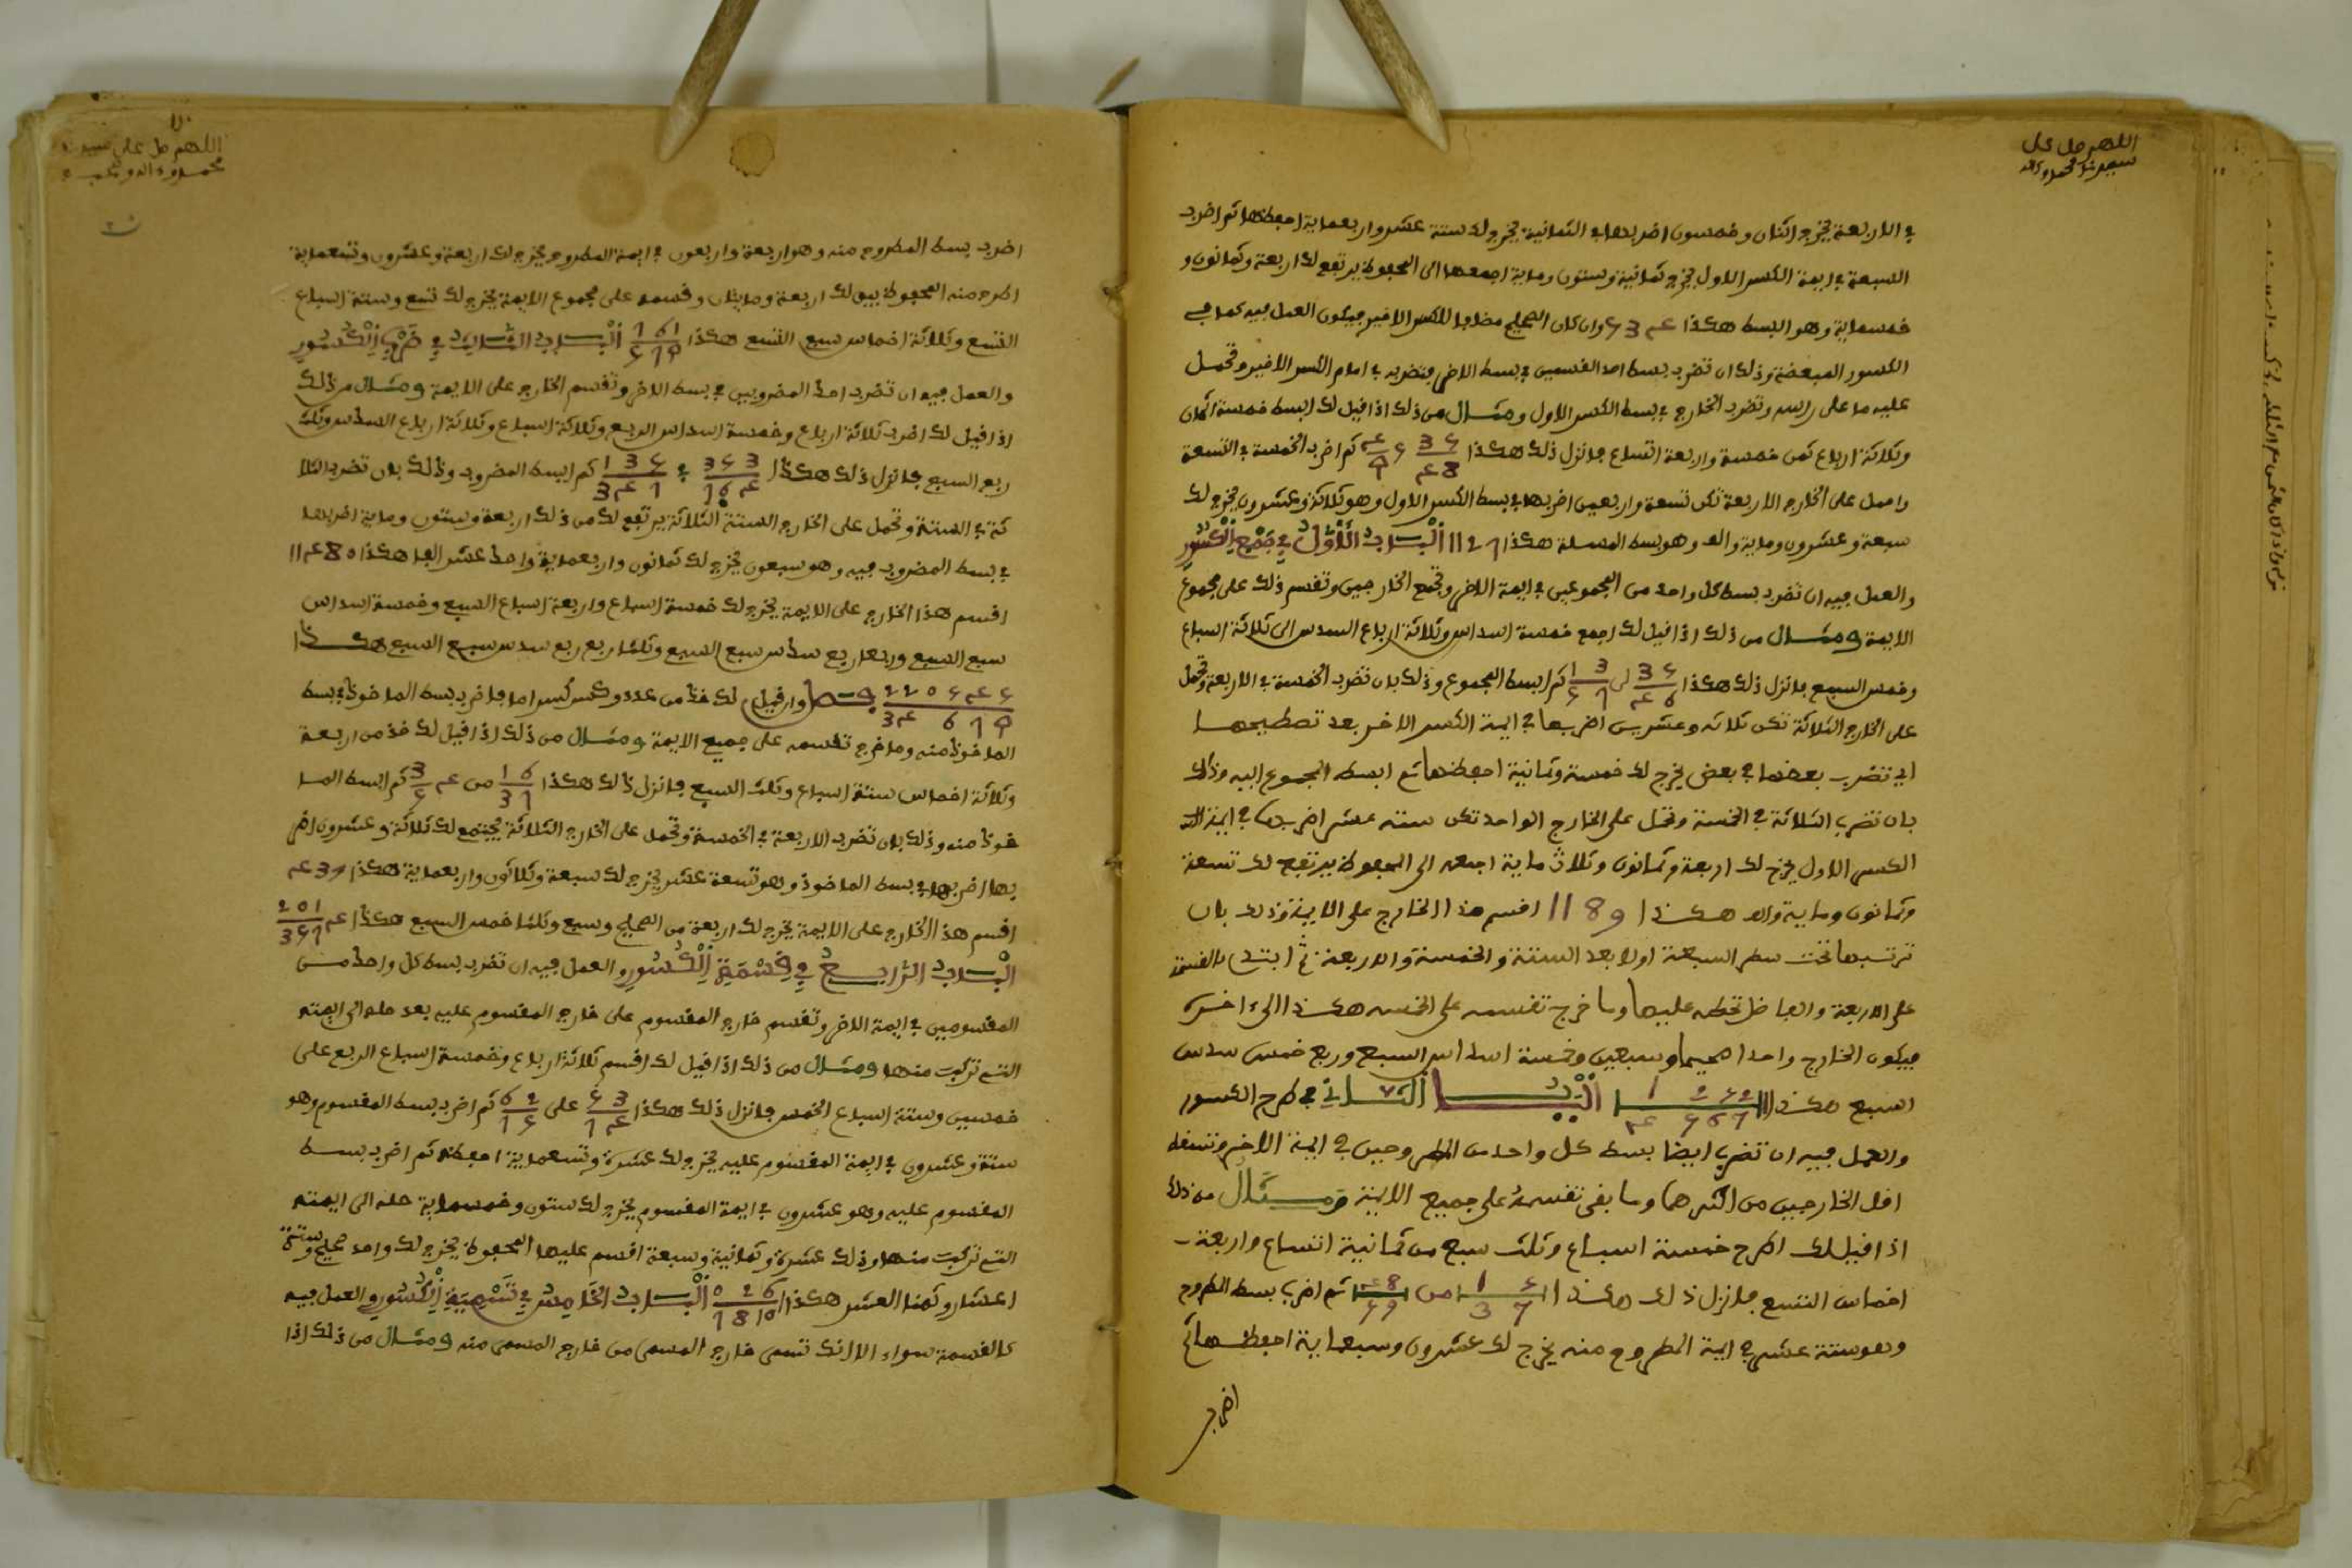 اللهم صل على
سيدنا محمد وءاله
في الاربعة يخرج اثنان وخمسون اضربها في الثمانية يخرج لك ستة عشر واربعماية احفظها ثم اضرب
السبعة في ايمة الكسر الاول يخرج ثمانية وستون وماية اجمعها الى المحفوظ يرتفع لك اربعة وثمانون و
خمسماية وهو البسط هكذا 584 وان كان الصحيح مضافا للكسر الاخير فيكون العمل فيه كما في
الكسور المبعضة وذلك ان تضرب بسط احد القسمين في بسط الاخر وتضربه في امام الكسر الاخير وتحمل
عليه ما على راسه وتضرب الخارج في بسط الكسر الاول ومثال من ذلك اذا قيل لك ابسط خمسة اثمان
وثلاثة ارباع ثمن خمسة واربعة اتساع فانزل ذلك هكذا ثم اضرب الخمسة في التسعة
واحمل على الخارج الاربعة تكن تسعة واربعين اضربها في بسط الكسر الاول وهو ثلاثة وعشرون يخرج لك
سبعة وعشرون وماية والف وهو بسط المسلة هكذا 1127 الباب الاول في جمع الكسور
والعمل فيه ان تضرب بسط كل واحد من المجموعين في ايمة الاخر وتجمع الخارجين وتقسم ذلك على مجموع
الايمة ومثال من ذلك اذا قيل لك اجمع خمسة اسداس وثلاثة ارباع السدس الى ثلاثة اسباع
وخمس السبع فانزل ذلك هكذا الى ثم ابسط المجموع وذلك بان تضرب الخمسة في الاربعة وتحمل
على الخارج الثلاثة تكن ثلاثة وعشرين اضربها في ايمة الكسر الاخر بعد تسطيحها
اي تضرب بعضها في بعض يخرج لك خمسة وثمانية احفظها ثم ابسط المجموع اليه وذلك
بان تضرب الثلاثة في الخمسة وتحمل على الخارج الواحد تكن ستة عشر اضربها في ايمة
الكسر الاول يخرج لك اربعة وثمانون وثلاث ماية اجمعه الى المحفوظ يرتفع لك تسعة
وثمانون وماية والف هكذا 1189 اقسم هذا الخارج على الايمة وذلك بان
ترتبها تحت سطر السبعة اولا بعد الستة والخمسة والاربعة ثم ابتدئ بالقسمة
على الاربعة والفاضل تحطه عليها وما خرج تقسمه على الخمسة هكذا الى ءاخره
فيكون الخارج واحدا صحيحا وسبعين وخمسة اسداس السبع وربع خمس سدس
السبع هكذا الباب الثاني في طرح الكسور
والعمل فيه ان تضرب ايضا بسط كل واحد من المطروحين في ايمة الاخر وتسقط
اقل الخارجين من اكثرهما وما بقي تقسمه على جميع الايمة ومثال من ذلك
اذا قيل لك اطرح خمسة اسباع وثلث سبع من ثمانية اتساع واربعة
اخماس التسع فانزل ذلك هكذا من ثم اضرب بسط المطروح
وهو ستة عشر في ايمة المطروح منه يخرج لك عشرون وسبعماية احفظها ثم
اضرب
اللهم صل على سيدنا
محمد وءاله وصحبه
اضرب بسط المطروح منه وهو اربعة واربعون في ايمة المطروح يخرج لك اربعة وعشرون وتسعماية
اطرح منه المحفوظ يبق لك اربعة ومايتان وقسمه على مجموع الايمة يخرج لك تسع وستة اسباع
التسع وثلاثة اخماس سبع التسع هكذا الباب الثالث في ضرب الكسور
والعمل فيه ان تضرب احد المضروبين في بسط الاخر وتقسم الخارج على الايمة ومثال من ذلك
اذا قيل لك اضرب ثلاثة ارباع وخمسة اسداس الربع وثلاثة اسباع وثلاثة ارباع السدس وثلث
ربع السبع فانزل ذلك هكذا في ثم ابسط المضروب وذلك بان تضرب الثلا
ثة في الستة وتحمل على الخارج الستة الثلاثة يرتفع لك من ذلك اربعة وستون وماية اضربها
في بسط المضروب فيه وهو سبعون يخرج لك ثمانون واربعماية واحد عشر الفا هكذا 11480
اقسم هذا الخارج على الايمة يخرج لك خمسة اسباع واربعة اسباع السبع وخمسة اسداس
سبع السبع وربعا ربع سدس سبع السبع وثلثا ربع ربع سدس سبع السبع هكذا
وان قيل لك خذ من عدد وكسر كسر اما فاضرب بسط الماخوذ في بسط
الماخوذ منه وما خرج تقسمه على جميع الايمة ومثال من ذلك اذا قيل لك خذ من اربعة
وثلاثة اخماس ستة اسباع وثلث السبع فانزل ذلك هكذا من ثم ابسط الما
خوذ منه وذلك بان تضرب الاربعة في الخمسة وتحمل على الخارج الثلاثة يجتمع لك ثلاثة وعشرون اضر
بها اضربها في بسط الماخوذ وهو تسعة عشر يخرج لك سبعة وثلاثون واربعماية هكذا 437
اقسم هذا الخارج على الايمة يخرج لك اربعة من الصحيح وسبع وثلثا خمس السبع هكذا
الباب الرابع في قسمة الكسور والعمل فيه ان تضرب بسط كل واحد من
المقسومين في ايمة الاخر وتقسم خارج المقسوم على خارج المقسوم عليه بعد حله الى ايمته
التي تركبت منها ومثال من ذلك اذا قيل لك اقسم ثلاثة ارباع وخمسة اسباع الربع على
خمسين وستة اسباع الخمس فانزل ذلك هكذا على ثم اضرب بسط المقسوم وهو
ستة وعشرون في ايمة المقسوم عليه يخرج لك عشرة وتسعماية احفظه ثم اضرب بسط
المقسوم عليه وهو عشرون في ايمة المقسوم يخرج لك ستون وخمسماية حله الى ايمته
التي تركبت منها وذلك عشرة وثمانية وسبعة اقسم عليها المحفوظ يخرج لك واحد صحيح وستة
اعشار وثمنا العشر هكذا الباب الخامس في تسمية الكسور والعمل فيه
كالقسمة سواء الا انك تسمى خارج المسمى من خارج المسمى منه ومثال من ذلك اذا